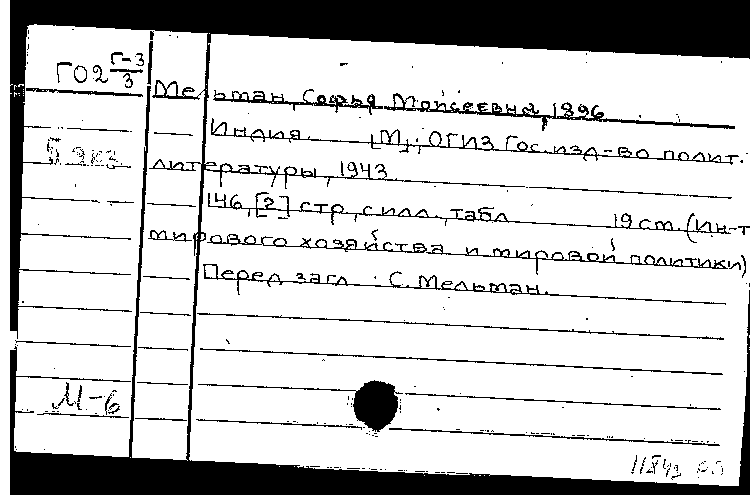 ГО2 Г-3/3
Мельман, Софья Моисеевна, 1896
Индия. [М], ОГИЗ Гос. изд-во полит.
5 экз
литературы, 1943
146, [2] стр, с илл., табл 19 см. (Ин-т
мирового хозяйства и мировой политики)
Перед загл.: С. Мельман.
М-6